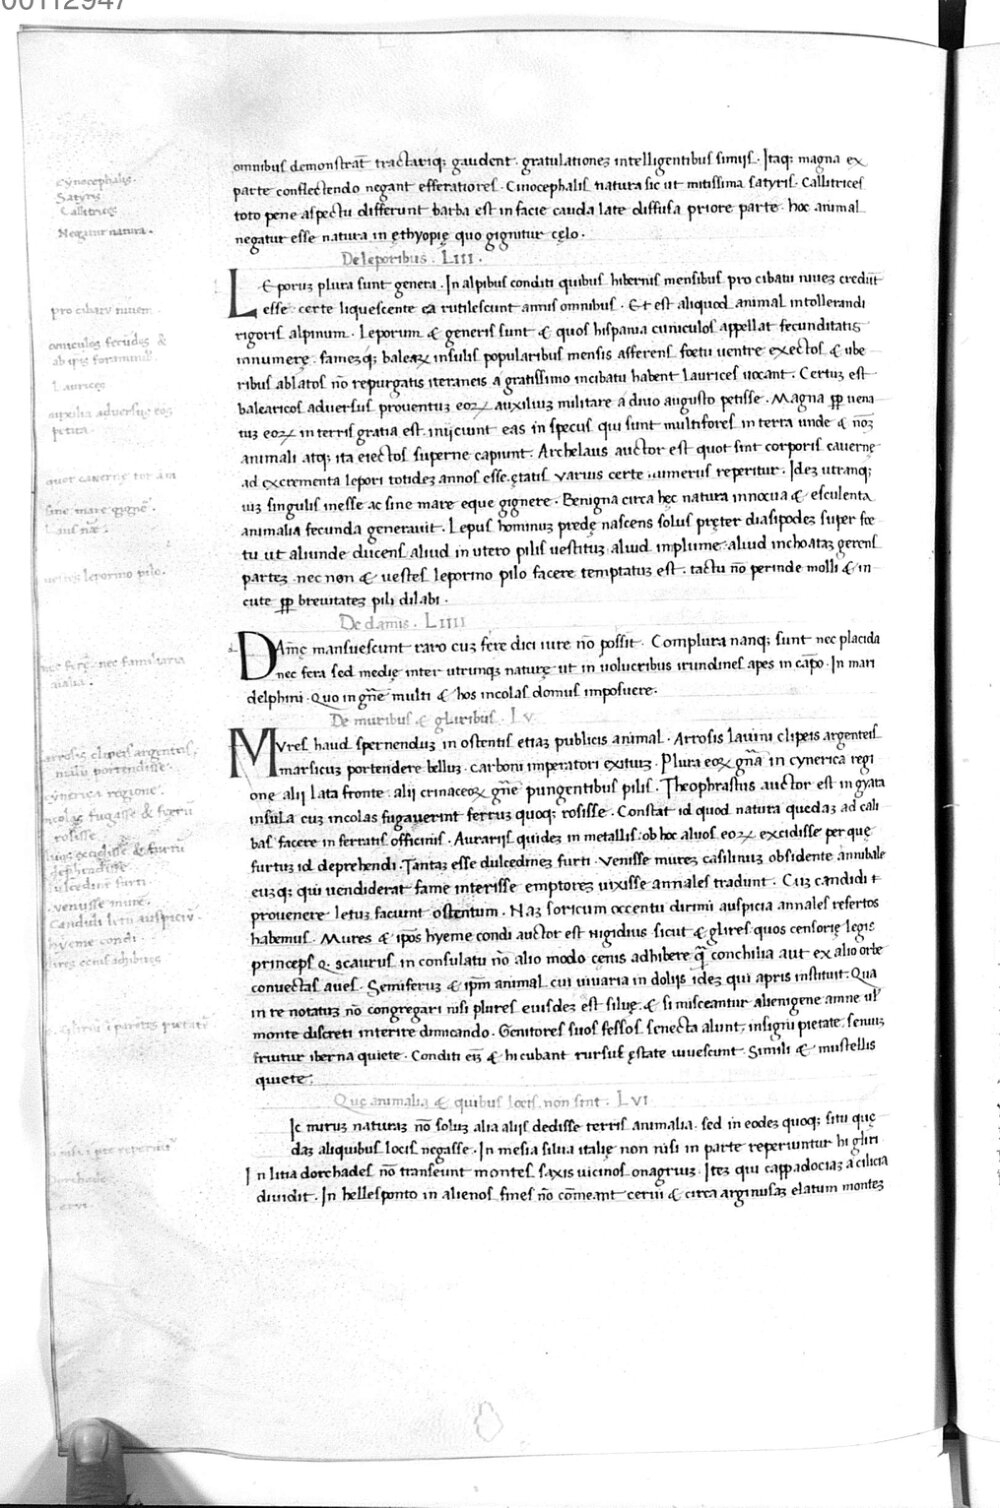 00112947
omnibus demonstrāt tractariq; gaudent. gratulationeʒ intelligentibus simijs. Itaq; magna ex
parte conflectendo negant efferatiores. Cinocephalis natura sic ut mitissima satyris. Callitrices
toto pene aspectu differunt barba est in facie cauda late diffusa priore parte. hoc animal
negatur esse natura in ęthyopię quo gignitur cęlo.
cynocephalis.
Satyris
Callitrices
Negatur natura.
De leporibus. LIII.
Leporuʒ plura sunt genera. In alpibus conditi quibus hibernis mensibus pro cibatu niueʒ crediūt
esse. certe liquescente ea rutilescunt annis omnibus. Et est aliquod animal intollerandi
rigoris alpinum. Leporum & generis sunt & quos hispania cuniculos appellat fecunditatis
innumerę. famesq; balearꝝ insulis popularibus mensis afferens foetu uentre exectos & ube
ribus ablatos nō repurgatis iteraneis a gratissimo incibatu habent laurices uocant. Certuʒ est
balearicos aduersus prouentuʒ eoꝝ auxiliuʒ militare a diuo augusto petisse. Magna ꝓp uena
tuʒ eoꝝ in terris gratia est. inijciunt eas in specus qui sunt multifores in terra unde & nōʒ
animali atq; ita eiectos superne capiunt. Archelaus auctor est quot sint corporis cauernę
ad excrementa lepori totideʒ annos esse ętatis varius certe numerus reperitur. Ideʒ utranq;
uiʒ singulis inesse ac sine mare eque gignere. Benigna circa hęc natura innocua & esculenta
animalia fecunda generauit. Lepus hominuʒ predę nascens solus pręter diasipodeʒ super foe
tu ut aliunde ducens aliud in utero pilis uestituʒ aliud inplume. aliud inchoataʒ gerens
parteʒ. nec non & uestes leporino pilo facere temptatuʒ est. tactu nō perinde molli & in
cute ꝓp breuitateʒ pili dilabi.
pro cibatu niuem.
cuniculos fecūdos &
Laurices
auxilia aduersus eos
petita.
quot cauernę tot āni
sine mare gignē.
uestes leporino pilo.
De damis. LIIII
Damę mansuescunt raro cuʒ fere dici iure nō possit. Complura nanq; sunt nec placida
nec fera sed medię inter utrunqʒ naturę ut in uolucribus irundines apes in cāpo. In mari
delphini. Quo in gn̄e multi & hos incolas domus imposuere.
nec ferę nec familiaria
De muribus & gliribus. Lv
Mvres haud spernenduʒ in ostentis etiaʒ publicis animal. Arrosis lauini clipeis argenteis
marsicuʒ portendere belluʒ. carboni imperatori exituʒ. Plura eoꝝ gn̄a in cynerica regi
one alij lata fronte. alij erinaceoꝝ gn̄e pungentibus pilis. Theophrastus auctor est in gyara
insula cuʒ incolas fugauerint ferruʒ quoq; rosisse. Constat id quod natura quedaʒ ad cali
bas facere in ferratis officinis. Aurarijs quideʒ in metallis. ob hoc aluos eoꝝ excidisse per quę
furtuʒ id deprehendi. Tantaʒ esse dulcedineʒ furti. Venisse mureʒ casilinuʒ obsidente annibale
euʒq; qui uendiderat fame interisse emptoreʒ uixisse annales tradunt. Cuʒ candidi t
prouenere letuʒ faciunt ostentum. Naʒ soricum occentu dirimi auspicia annales refertos
habemus. Mures & ip̄os hyeme condi auctor est Nigidius sicut & glires. quos censorię legis
princeps Q. Scaurus in consulatu nō alio modo cenis adhibere q̄ conchilia aut ex alio orbe
conuectas aues. Semiferuʒ & ip̄m animal cui uiuaria in dolijs ideʒ qui apris instituit. Qua
in re notatuʒ nō congregari nisi plures eiusdeʒ est siluę. & si misceantur alienigene amne ul̄
monte discreti interire dimicando. Genitores suos fessos senecta alunt, insigni pietate. seniuʒ
finitur iberna quiete. Conditi eiʒ & hi cubant rursus ęstate iuuescunt. Simili & mustellis
quiete.
arrosis clipeis argenteis,
malū portendisse.
cynerica regione.
incolas fugasse & ferrū
rosisse.
dulcedine furti.
venisse murē.
Candidi letū auspiciū.
hyeme condi.
glires cenis adhiberi
Quę animalia & quibus locis non sint. LVI
Ic miruʒ naturaʒ nō soluʒ alia alijs dedisse terris animalia. sed in eodeʒ quoq; situ quę
daʒ aliquibus locis negasse. In mesia silua italię non nisi in parte reperiuntur hi gliri
In litia dorchades nō transeunt montes saxis uicinos onagriuʒ. Iteʒ qui cappadociaʒ a cilicia
diuidit. In hellesponto in alienos fines nō com̄eant cerui & circa arginusaʒ elatum monteʒ
cerui.